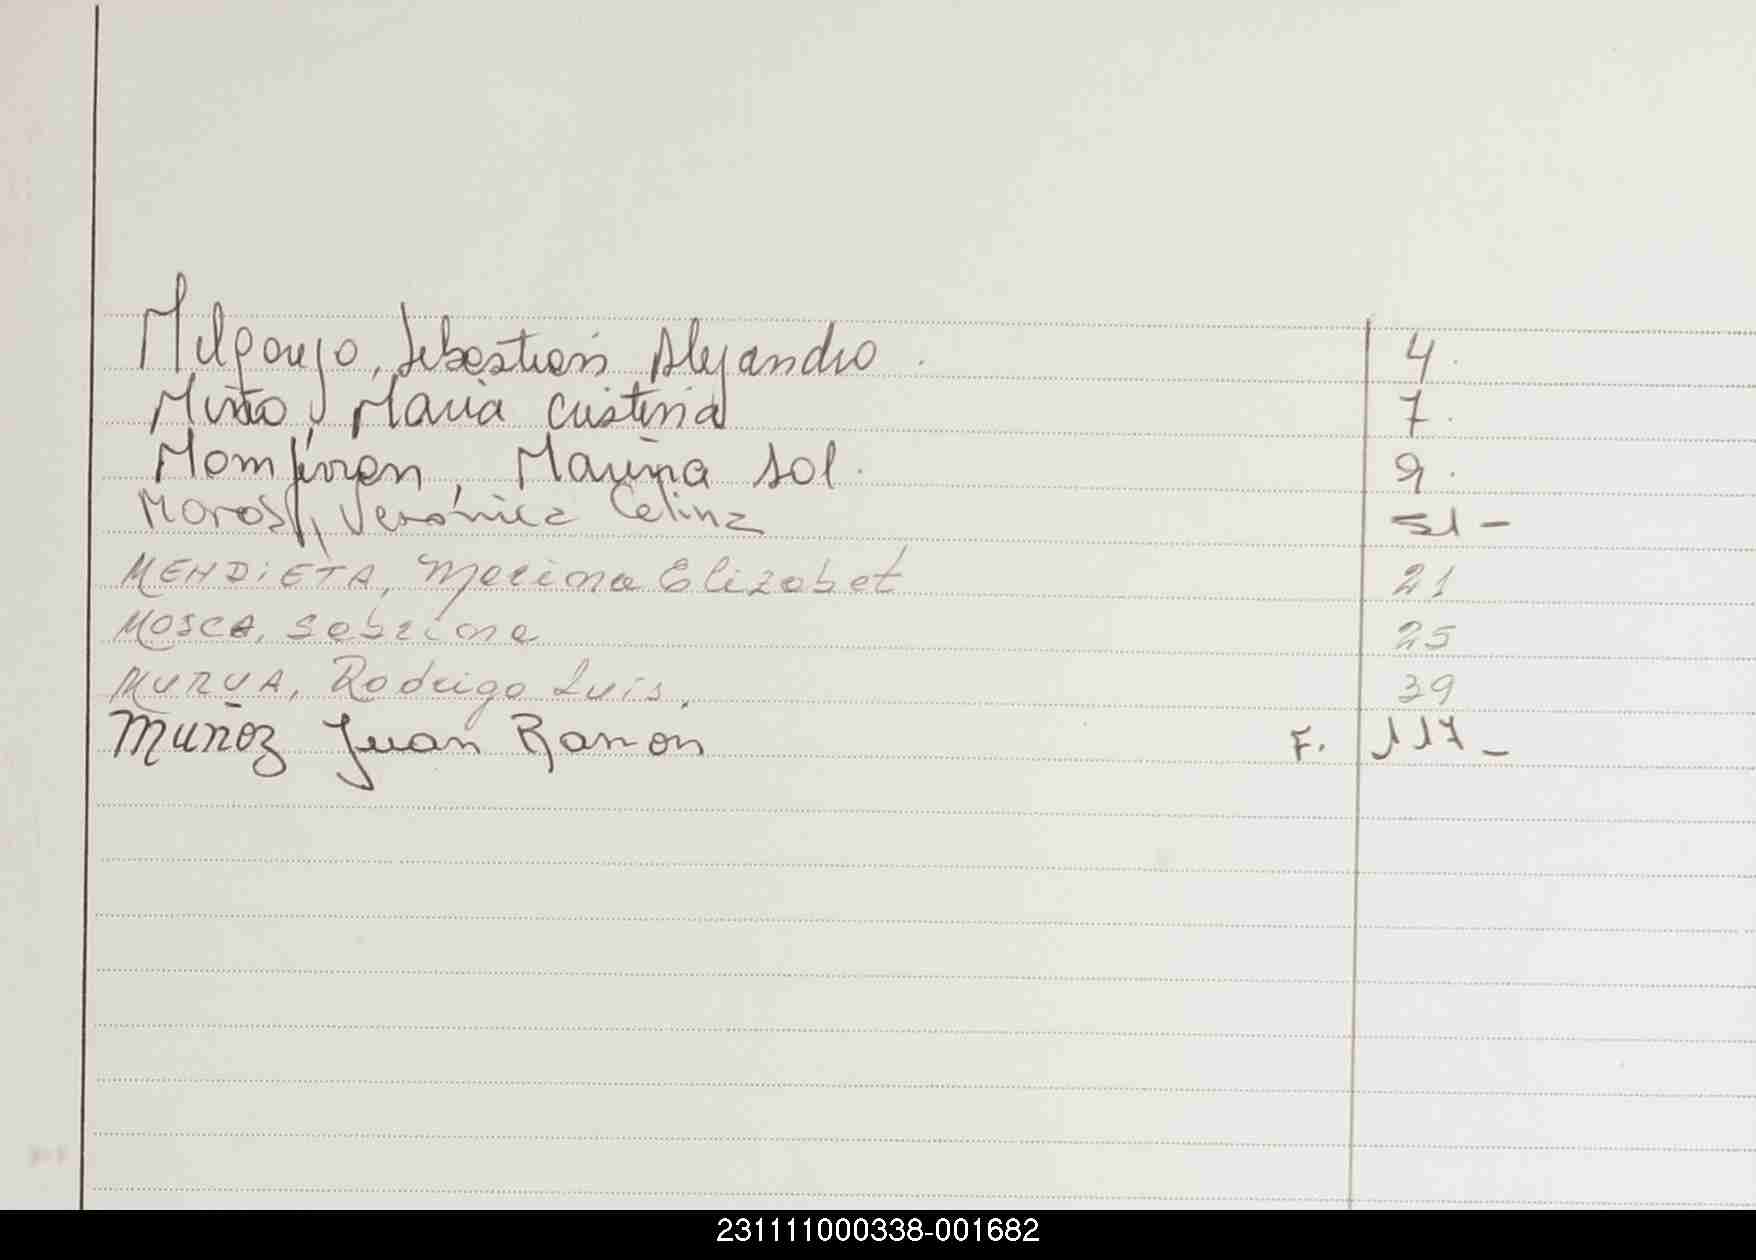 Melgarejo, Sebastián Alejandro . 4.
Miño, Maria Cristina 7.
Marina Sol. 9.
Verónica Celina 51 -
MENDIETA, Marina Elizabet 21
MOSCA, Sabrina 25
MURUA, Rodrigo Luis. 39
Muñoz Juan Ramón F. 117 -
231111000338-001682